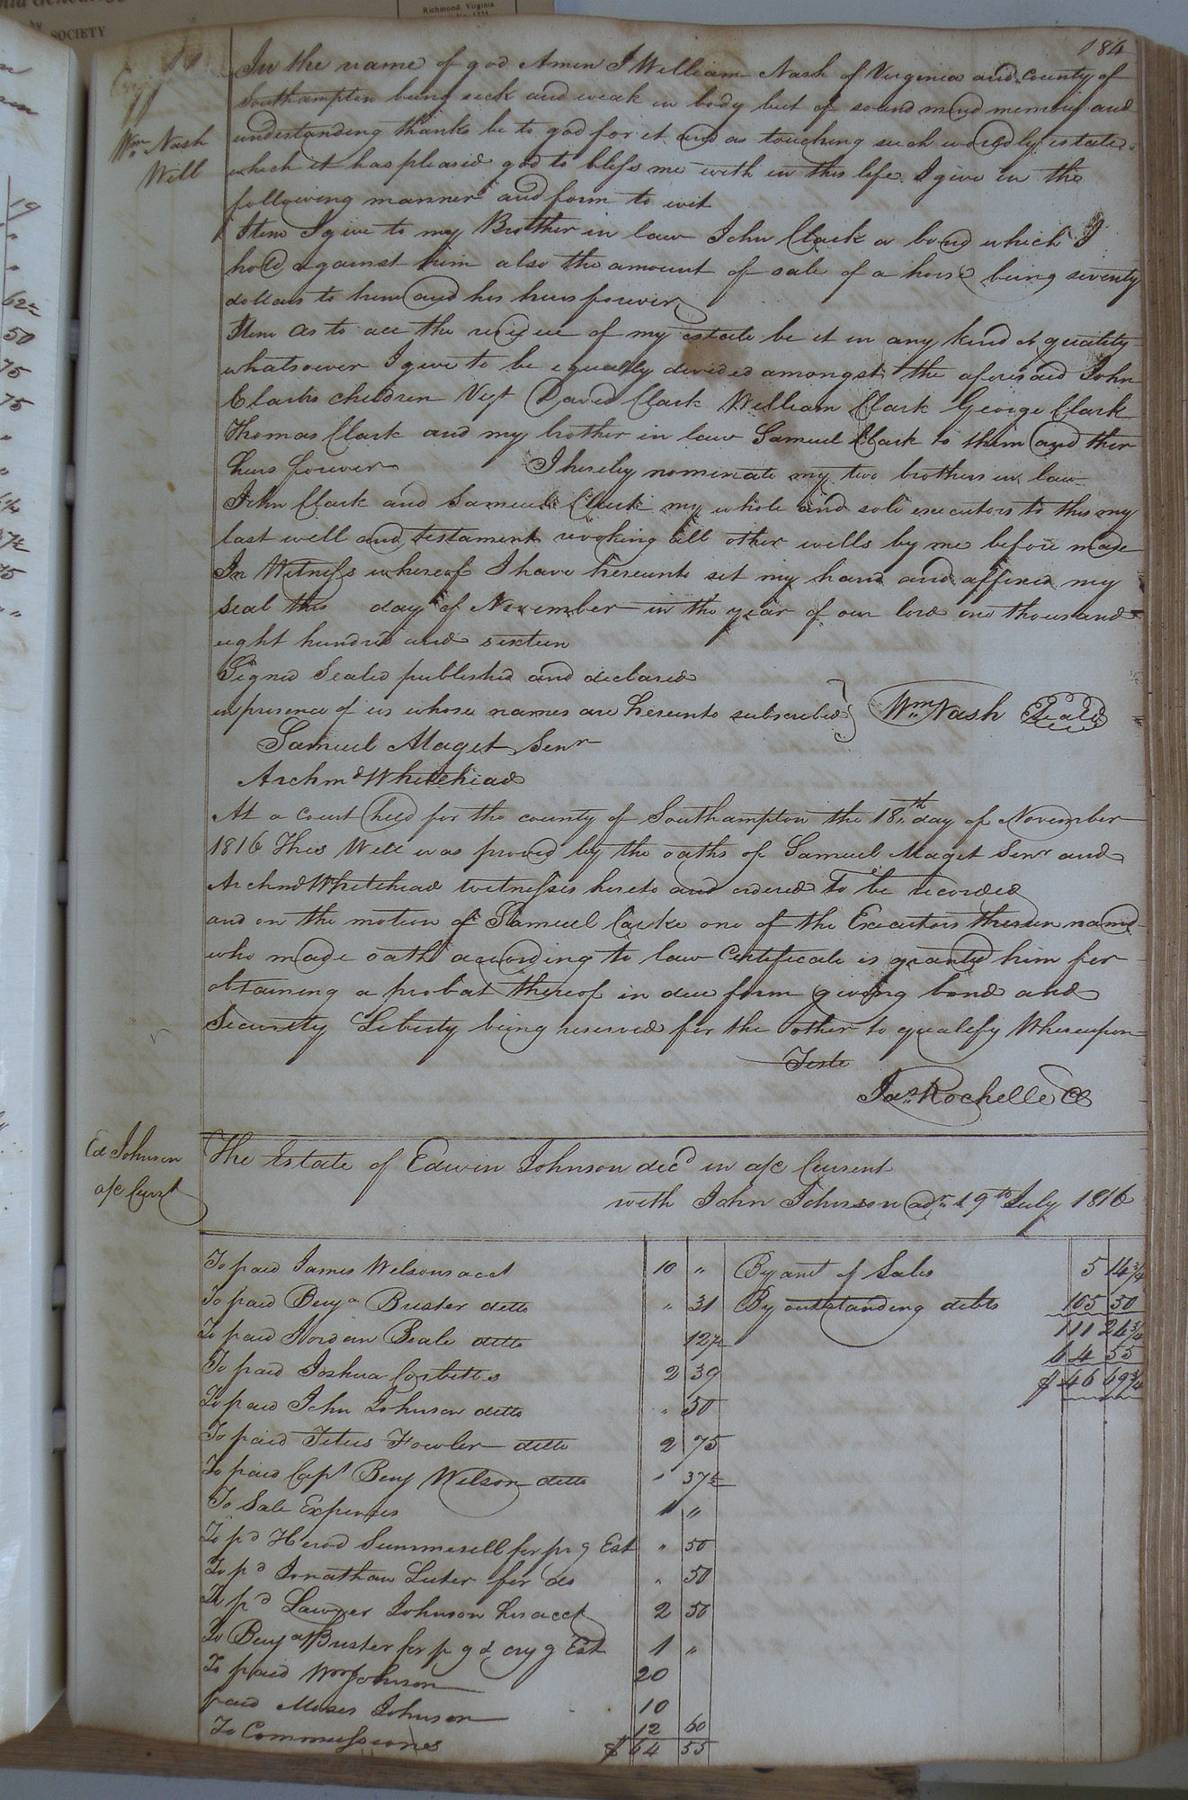 Richmond, Virginia
SOCIETY
184
In the name of god Amen I William Nash of Virginia and County of
Southampton being sick and weak in body but of sound mind memory and
Wm Nash
Will
understanding thanks be to god for it and as touching such worldly estate
which it has pleased god to bless me with in this life I give in the
following manner and form to wit
Item I give to my Brother in law John Clark a bond which I
hold against him also the amount of sale of a horse being seventy
dollars to him and his heirs forever
Item As to all the residue of my estate be it in any kind or quality
whatsoever I give to be equally devided amongst the aforesaid John
Clarks children Vizt David Clark William Clark George Clark
Thomas Clark and my brother in law Samuel Clark to them and ther
heirs forever I hereby nominate my two brothers in law
John Clark and Samuel Clark my whole and sole executors to this my
last will and testament revoking all other wills by me before made
In Witness whereof I have hereunto set my hand and affixed my
Seal this day of November in the year of our lord one thousand
eight hundred and sixteen
Signed Sealed published and declared
in presence of us whose names are hereunto subscribed } Wm Nash Seald
Samuel Maget Senr
Archmd Whitehead
At a Court held for the county of Southampton the 18th day of November
1816 This Will was proved by the oaths of Samuel Maget Senr and
Archmd Whitehead witnesses hereto and ordered To be recorded
and on the motion of Samuel Clarke one of the Executors therein named
who made oath according to law Certificate is granted him for
obtaining a probat thereof in due form giving bond and
Security Liberty being reserved for the other to qualify Whereupon
Teste
Jas Rochelle CC
Ed Johnson
a/c Currt
The Estate of Edwin Johnson decd in a/c Current
with John Johnson adr 19th July 1816
To paid James Wilsons acct 10 "
To paid Benja Bruster ditto " 31
To paid Jordan Beale ditto 12½
To paid Joshua Corbetts 2 39
To paid John Johnson ditto " 50
To paid Titus Fowler ditto 2 75
To paid Capt Benj Wilson ditto " 37½
To Sale Expenses 1 "
To pd Herod Summerell for prg Est " 50
To pd Jonathan Luter for do " 50
To pd Lawyer Johnson his acct 2 50
To Benja Bruster for pg & cryg Est 1 "
To paid Wm Johnson 20
paid Moses Johnson 10
To Commissions 12 60
$ 64 55
By amt of Sales 5 74¾
By outstanding debts 105 50
111 24¾
64 55
$ 46 69¾